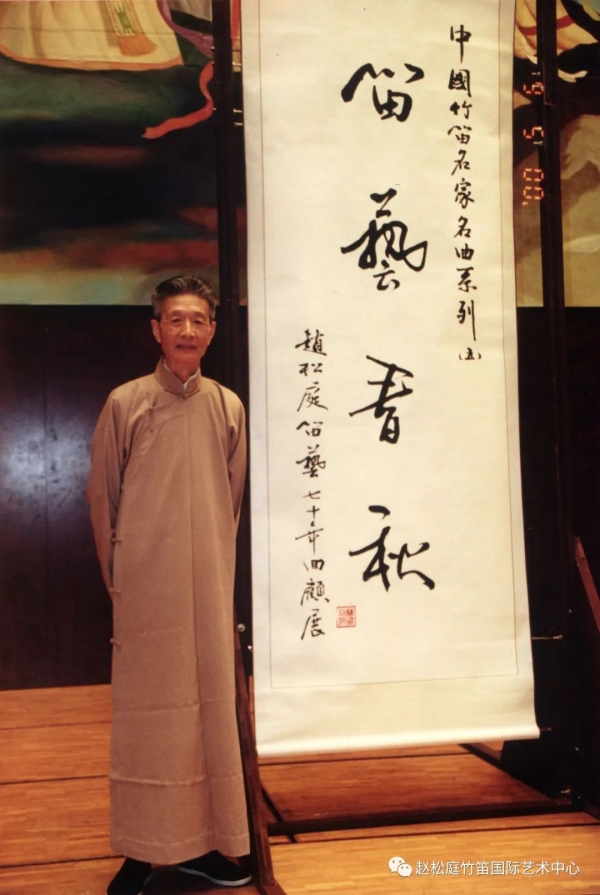 中國竹笛名家名曲系列(五)
笛藝春秋
趙松庭笛藝七十年回顧展
赵松庭竹笛国际艺术中心